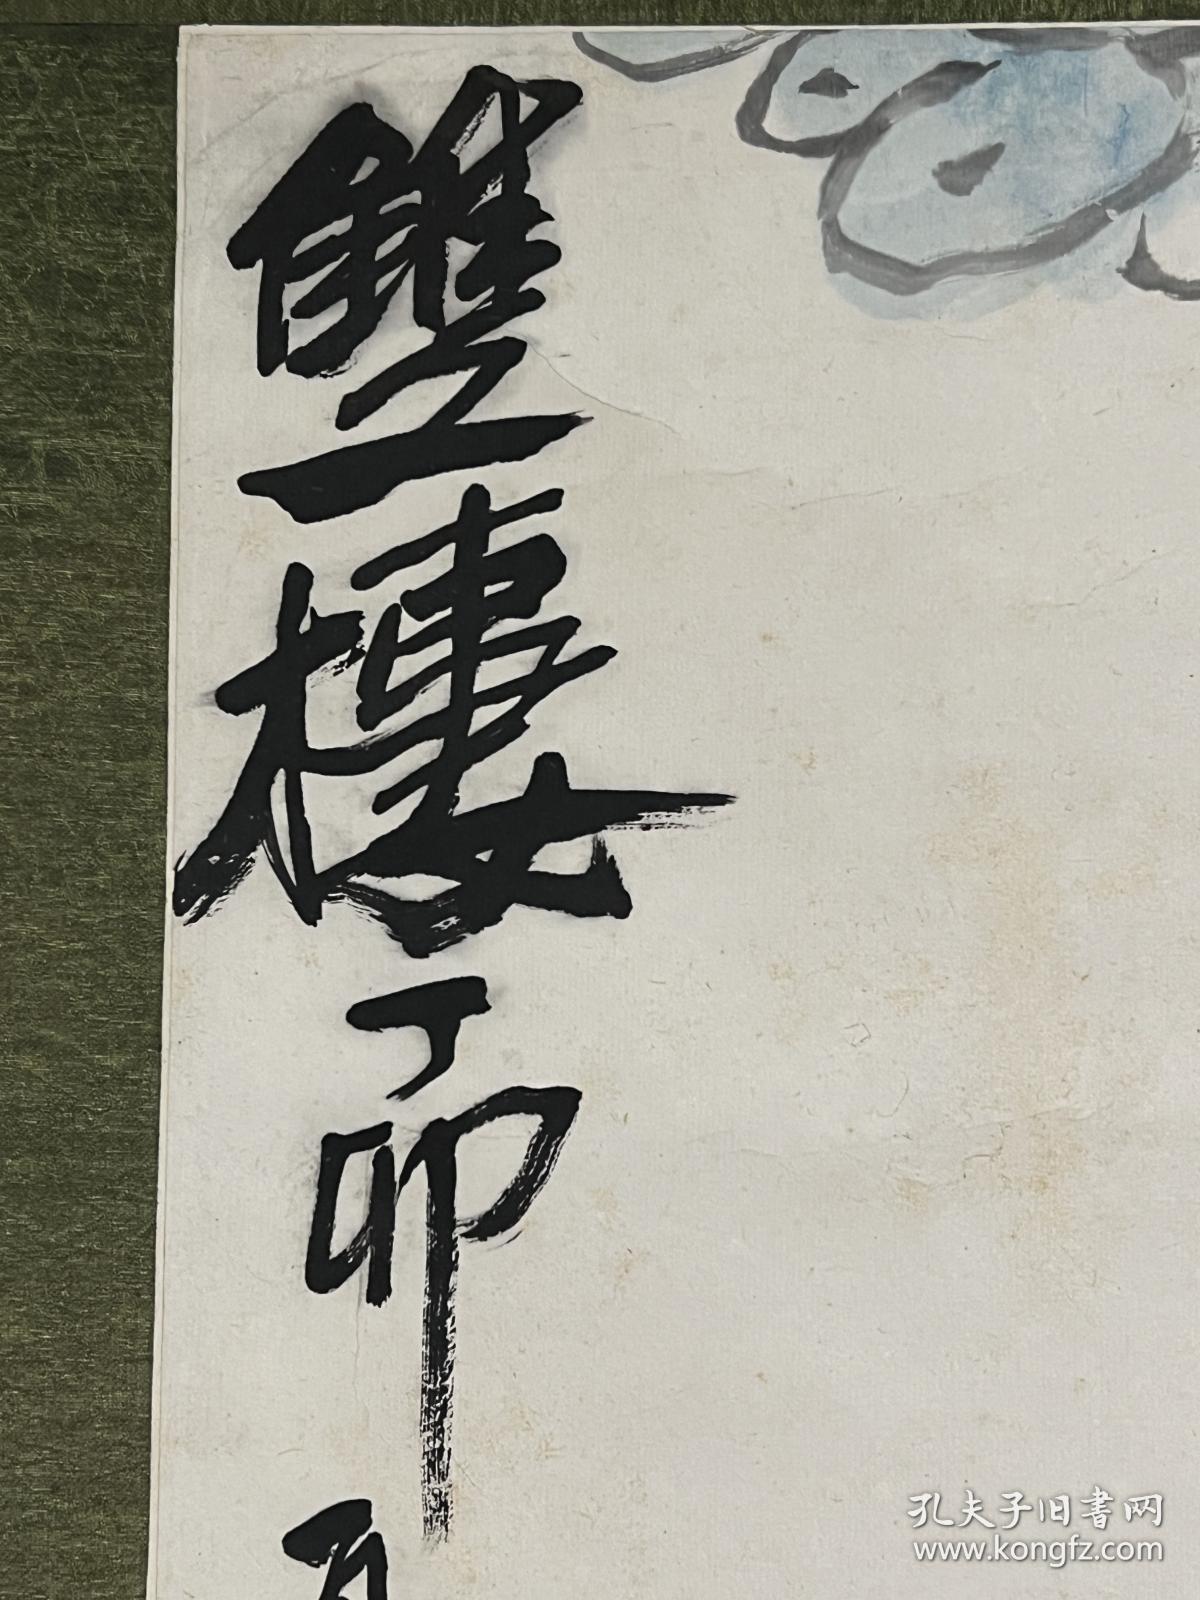 雙棲丁卯
孔夫子旧书网
www.kongfz.com